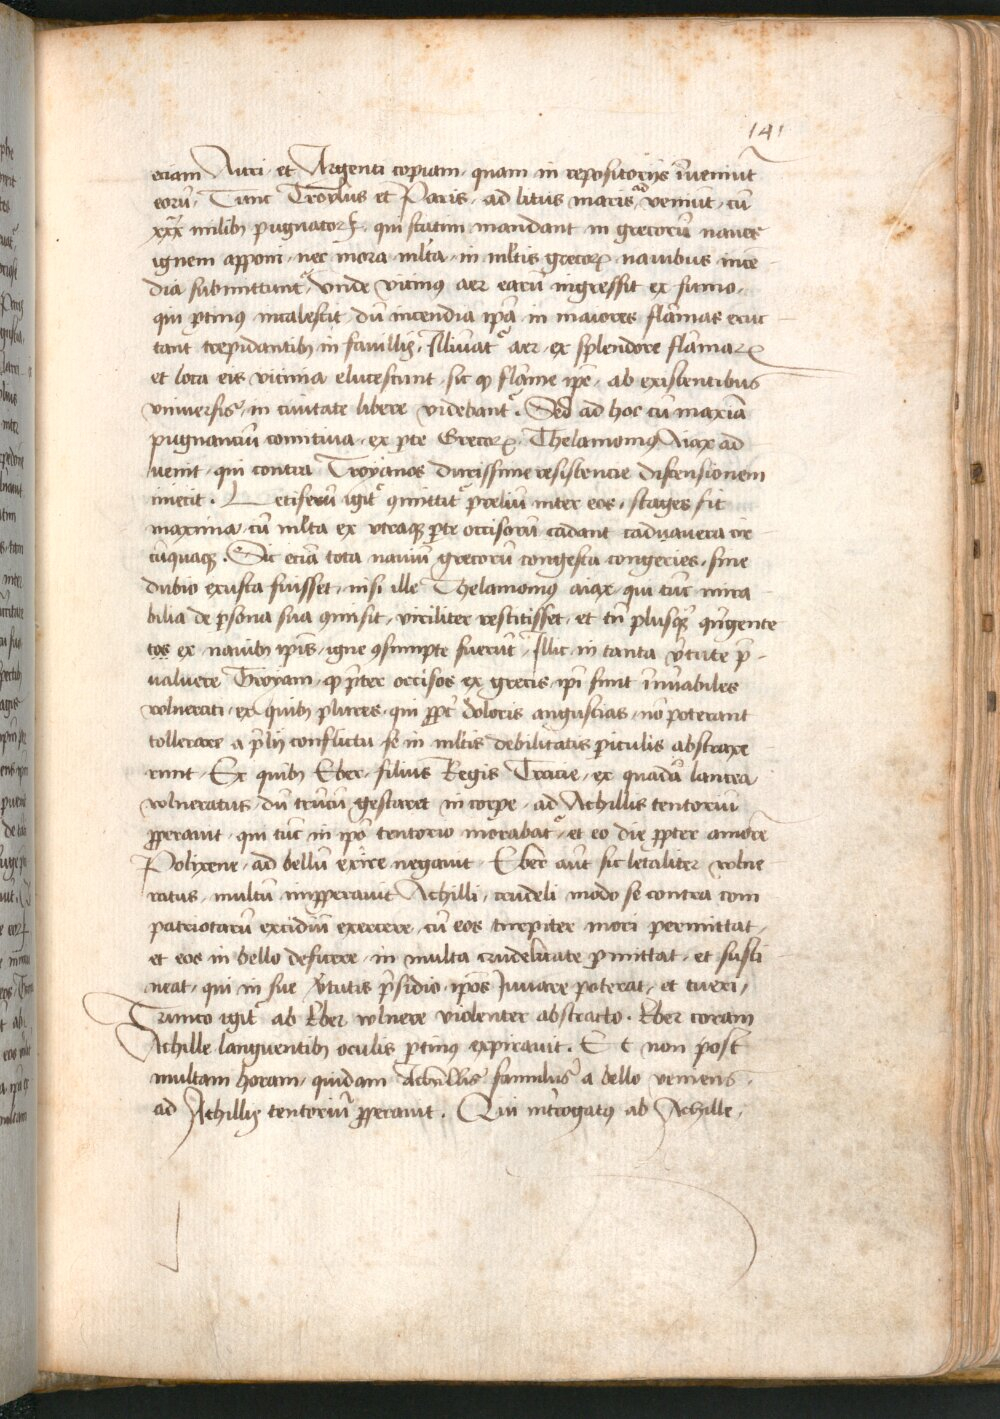 141
eciam Auri et Argenti copiam quam in repositorijs īueniūt
eorū. Tunc Troylus et Paris ad litus maris veniūt cū
xxx milibȝ pugnatorꝝ qui statim mandant in grecorū naues
ignem apponi nec mora mlta in mltis grecorꝝ nauibus ince
dia submittuntᷣ vnde vicinus aer earū ingressit ex fumo
qui ꝓtinus incalescit dū incendia ip̄a in maiores flāmas eruc
tant trepidantibȝ in fauillis. Illūatᷣ aer ex splendore flāmarꝝ
et loca eis vicina elucescunt sic ꝙ flāme ip̄e ab existentibus
vniuersis in ciuitate libere videbantᷣ. Sed ad hoc cū maxiā
pugnanciū comitiua ex ꝑte Grecorꝝ Thelamonius Aiax ad
uenit qui contra Troyanos durissime resistencie discensionem
iniecit. Letiferū igitᷣ ꝯmittitᷣ p̄lium inter eos stages fit
maxima cū mlta ex vtraqȝ ꝑte occisorū cadant caduauera cir
cūquaqȝ. Sic eciā tota nauiū grecorū congesta congeries sine
dubio exusta fuisset nisi ille Thelamonius aiax qui tūc mira
bilia de ꝑsona sua ꝯmisit viriliter restitisset et tn̄ plusqȝ qn̄gente
tos ex nauibȝ ipīs igne ꝯsumpte fuerūt. Illic in tanta v̄tute p̄
ualuere Troyani ꝙ p̄ter occisos ex grecis ip̄i sunt īnūabiles
volnerati ex quibȝ plures qui ꝓpt̄ doloris angustias nō poterant
tollerare a p̄lij conflictu se in mltis debilitatis ꝑiculis abstraxe
runt. Ex quibȝ Eber filius Regis Tracie ex quadā lancea
volneratus dū trūcū gestaret in corpe ad Achillis tentoriū
ꝓperauit qui tūc in ip̄o tentorio morabatᷣ et eo die ꝓpter amorē
Polixene ad bellū exire negauit. Eber aūt sic letaliter volne
ratus multū imꝓperauit Achilli crudeli modo se contra com
patriotarū excidiū exercere cū eos turpiter mori permittat
et eos in bello deficere in multa crudelitate ꝑmittat et susti
neat qui in sue v̄tutis p̄sidio ip̄os Iuuare poterat et tueri
Trunco igitᷣ ab Eber volnere violenter abstracto. Eber coram
Achille languentibȝ oculis ꝓtinus expirauit. Et non post
multam horam quidam Achillis famulus a bello veniens
ad Achillis tentoriū ꝓperauit. Qui int̄rogatus ab Achille